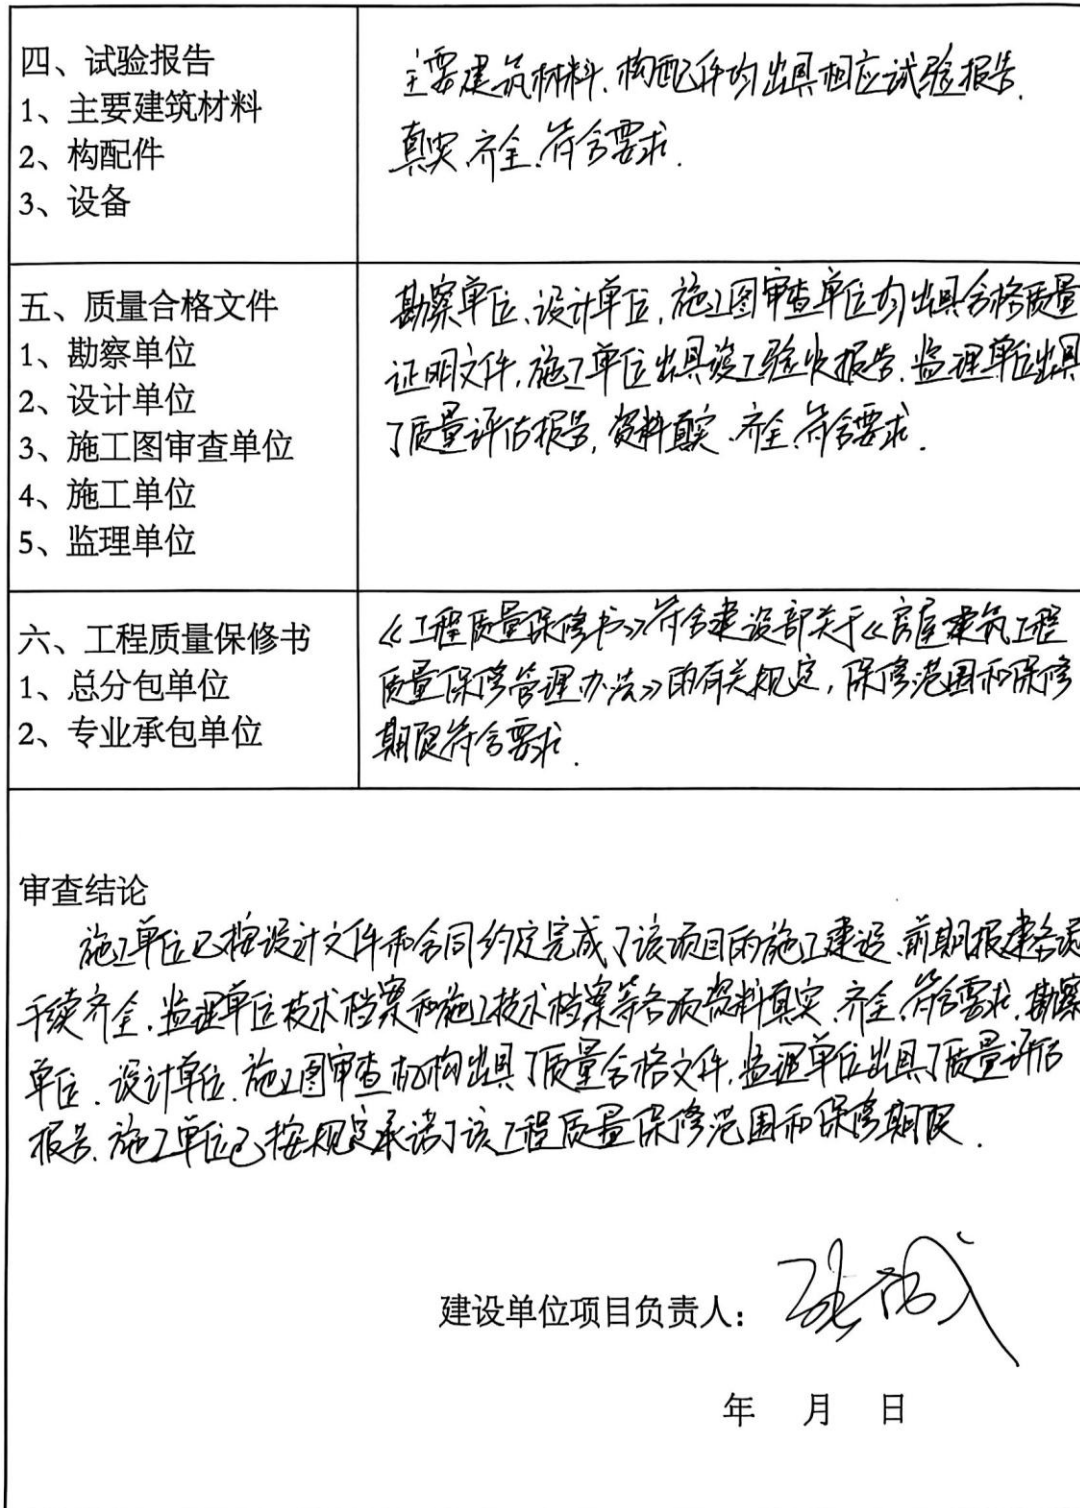 四、试验报告
1、主要建筑材料
2、构配件
3、设备
主要建筑材料、构配件均出具相应试验报告.
真实、齐全、符合要求.
五、质量合格文件
1、勘察单位
2、设计单位
3、施工图审查单位
4、施工单位
5、监理单位
勘察单位、设计单位、施工图审查单位均出具合格质量
证明文件,施工单位出具竣工验收报告、监理单位出具
了质量评估报告,资料真实、齐全、符合要求.
六、工程质量保修书
1、总分包单位
2、专业承包单位
《工程质量保修书》符合建设部关于《房屋建筑工程
质量保修管理办法》的有关规定,保修范围和保修
期限符合要求.
审查结论
施工单位已按设计文件和合同约定完成了该项目的施工建设、前期报建各项
手续齐全、监理单位技术档案和施工技术档案等各项资料真实、齐全、符合要求、勘察
单位、设计单位、施工图审查机构出具了质量合格文件,监理单位出具了质量评估
报告、施工单位已按规定承诺了该工程质量保修范围和保修期限.
建设单位项目负责人：
年 月 日